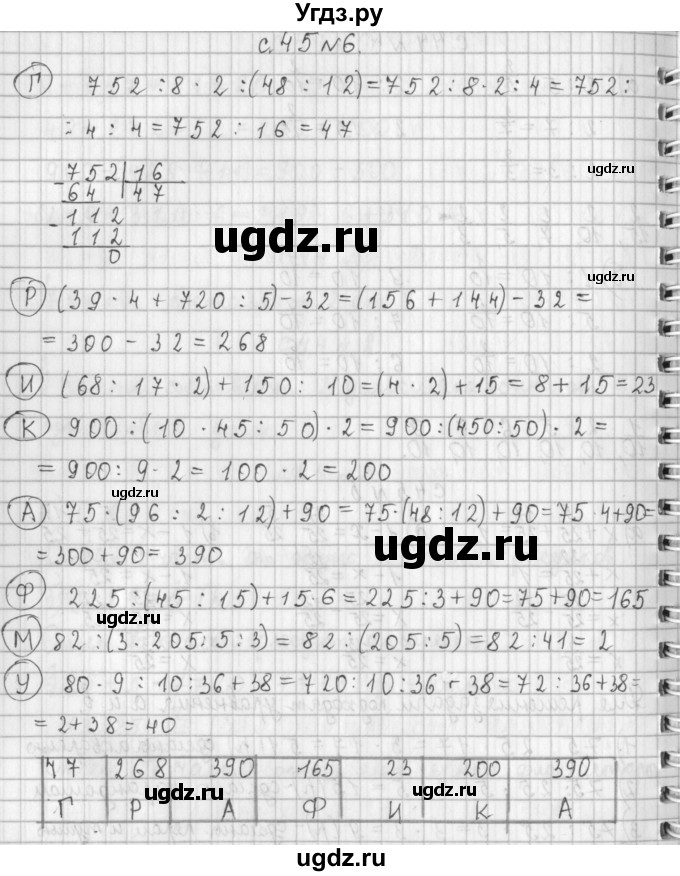 Угдз.ру
с.45 №6.
Г 752 : 8 · 2 : (48 : 12) = 752 : 8 · 2 : 4 = 752 :
: 4 : 4 = 752 : 16 = 47
ugdz.ru
752 | 16
64 47
112
112
0
ugdz.ru
ugdz.ru
Р (39 · 4 + 720 : 5) - 32 = (156 + 144) - 32 =
= 300 - 32 = 268
И (68 : 17 · 2) + 150 : 10 = (4 · 2) + 15 = 8 + 15 = 23
К 900 : (10 · 45 : 50) · 2 = 900 : (450 : 50) · 2 =
= 900 : 9 · 2 = 100 · 2 = 200
ugdz.ru
А 75 · (96 : 2 : 12) + 90 = 75 · (48 : 12) + 90 = 75 · 4 + 90 =
= 300 + 90 = 390
ugdz.ru
Ф 225 : (45 : 15) + 15 · 6 = 225 : 3 + 90 = 75 + 90 = 165
ugdz.ru
М 82 : (3 · 205 : 5 : 3) = 82 : (205 : 5) = 82 : 41 = 2
У 80 · 9 : 10 : 36 + 38 = 720 : 10 : 36 + 38 = 72 : 36 + 38 =
= 2 + 38 = 40
47 268 390 165 23 200 390
ugdz.ru ugdz.ru
Г Р А Ф И К А
ugdz.ru